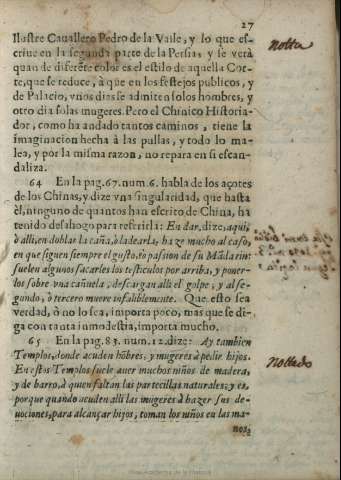 27
Ilustre Cauallero Pedro de la Valle, y lo que es-
criue en la segunda parte de la Persia, y se verà
quan de diferẽte color es el estilo de aquella Cor-
te, que se reduce, à que en los festejos publicos, y
de Palacio, vnos dias se admiten solos hombres, y
otro dia solas mugeres. Pero el Chinico Historia-
dor, como ha andado tantos caminos, tiene la
imaginacion hecha à las pullas, y todo lo ma-
lea, y por la misma razon, no repara en si escan-
daliza.
Notta
64 En la pag. 67. num. 6. habla de los açotes
de los Chinas, y dize vna singularidad, que hasta
èl, ninguno de quantos han escrito de China, ha
tenido desahogo para referirla: En dar, dize, aqui,
ò alli, en doblar la caña, ò ladearla, haze mucho al caso,
en que siguen siempre el gusto, ò passion de su Mãdarin:
suelen algunos sacarles los testiculos por arriba, y poner-
los sobre vna cañuela, descargan alli el golpe, y al se-
gundo, ò tercero muere infaliblemente. Que esto sea
verdad, ò no lo sea, importa poco, mas que se di-
ga con tanta inmodestia, importa mucho.
65 En la pag. 83. num. 12. dize: Ay tambien
Templos, donde acuden hõbres, y mugeres à pedir hijos.
En estos Templos suele auer muchos niños de madera,
y de barro, à quien faltan las partecillas naturales; y es,
porque quando acuden alli las mugeres à hazer sus de-
uociones, para alcançar hijos, toman los niños en las ma-
nos,
Nottado
Real Academia de la Historia